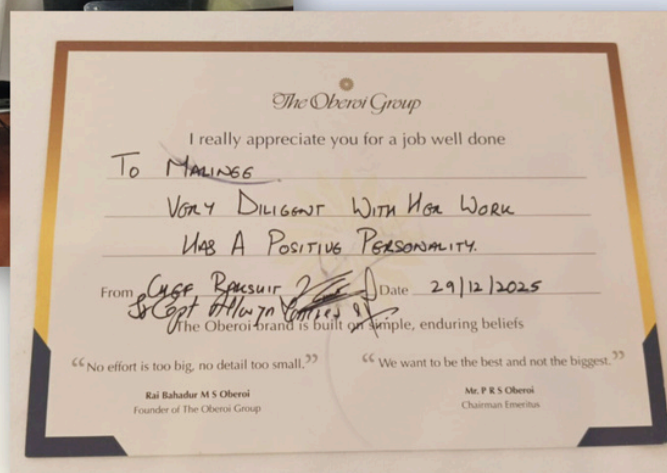 The Oberoi Group
I really appreciate you for a job well done
To MALINEE
VERY DILIGENT WITH HER WORK
HAS A POSITIVE PERSONALITY.
From CHEF Date 29/12/2025
The Oberoi brand is built on simple, enduring beliefs
“No effort is too big, no detail too small.”
Rai Bahadur M S Oberoi
Founder of The Oberoi Group
“We want to be the best and not the biggest.”
Mr. P R S Oberoi
Chairman Emeritus